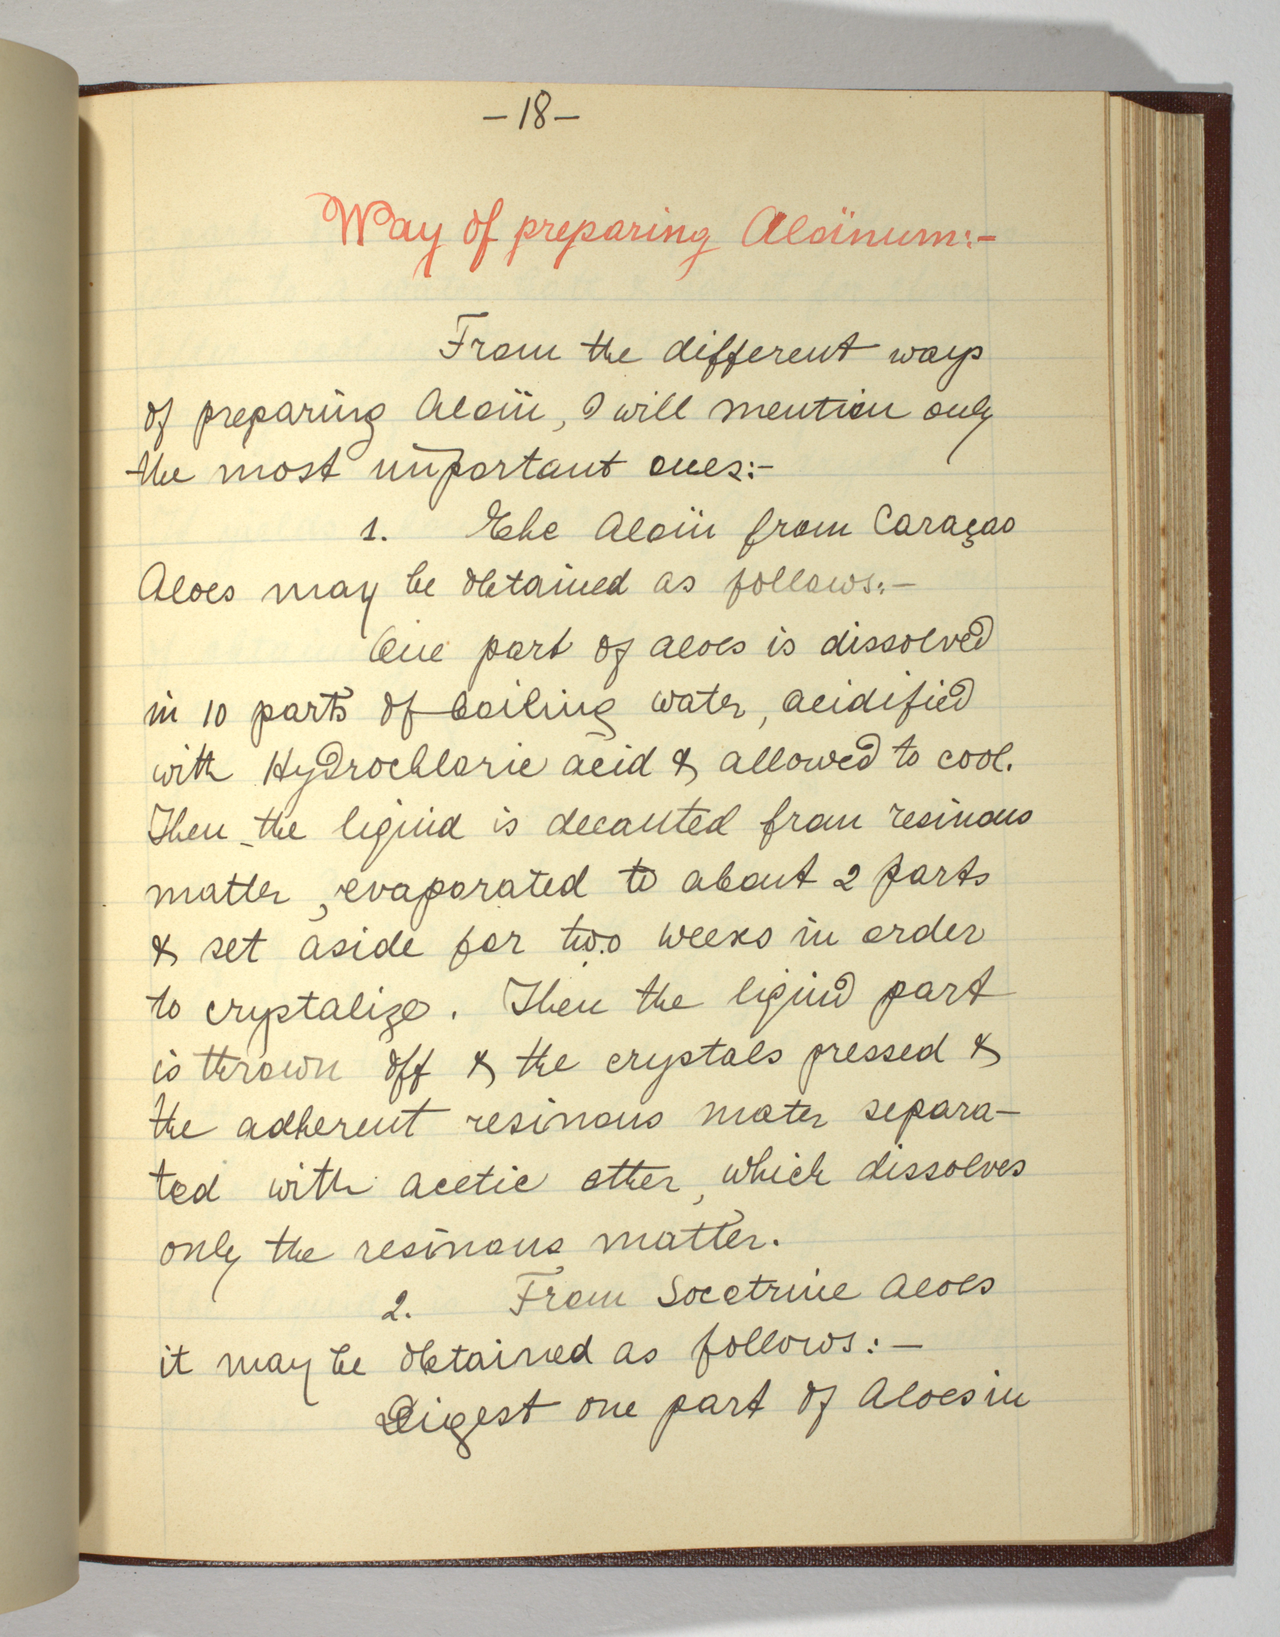 -18-
Way of preparing Aloïnum:-
From the different ways
of preparing Aloin, I will mention only
the most important ones:-
1. The Aloin from Caraçao
Aloes may be obtained as follows:-
One part of aloes is dissolved
in 10 parts of boiling water, acidified
with Hydrochloric acid & allowed to cool.
Then the liquid is decanted from resinous
matter, evaporated to about 2 parts
& set aside for two weeks in order
to crystalize. Then the liquid part
is thrown off & the crystals pressed &
the adherent resinous mater separa-
ted with acetic ether, which dissolves
only the resinous matter.
2. From Socotrine Aloes
it may be obtained as follows:-
Digest one part of Aloes in